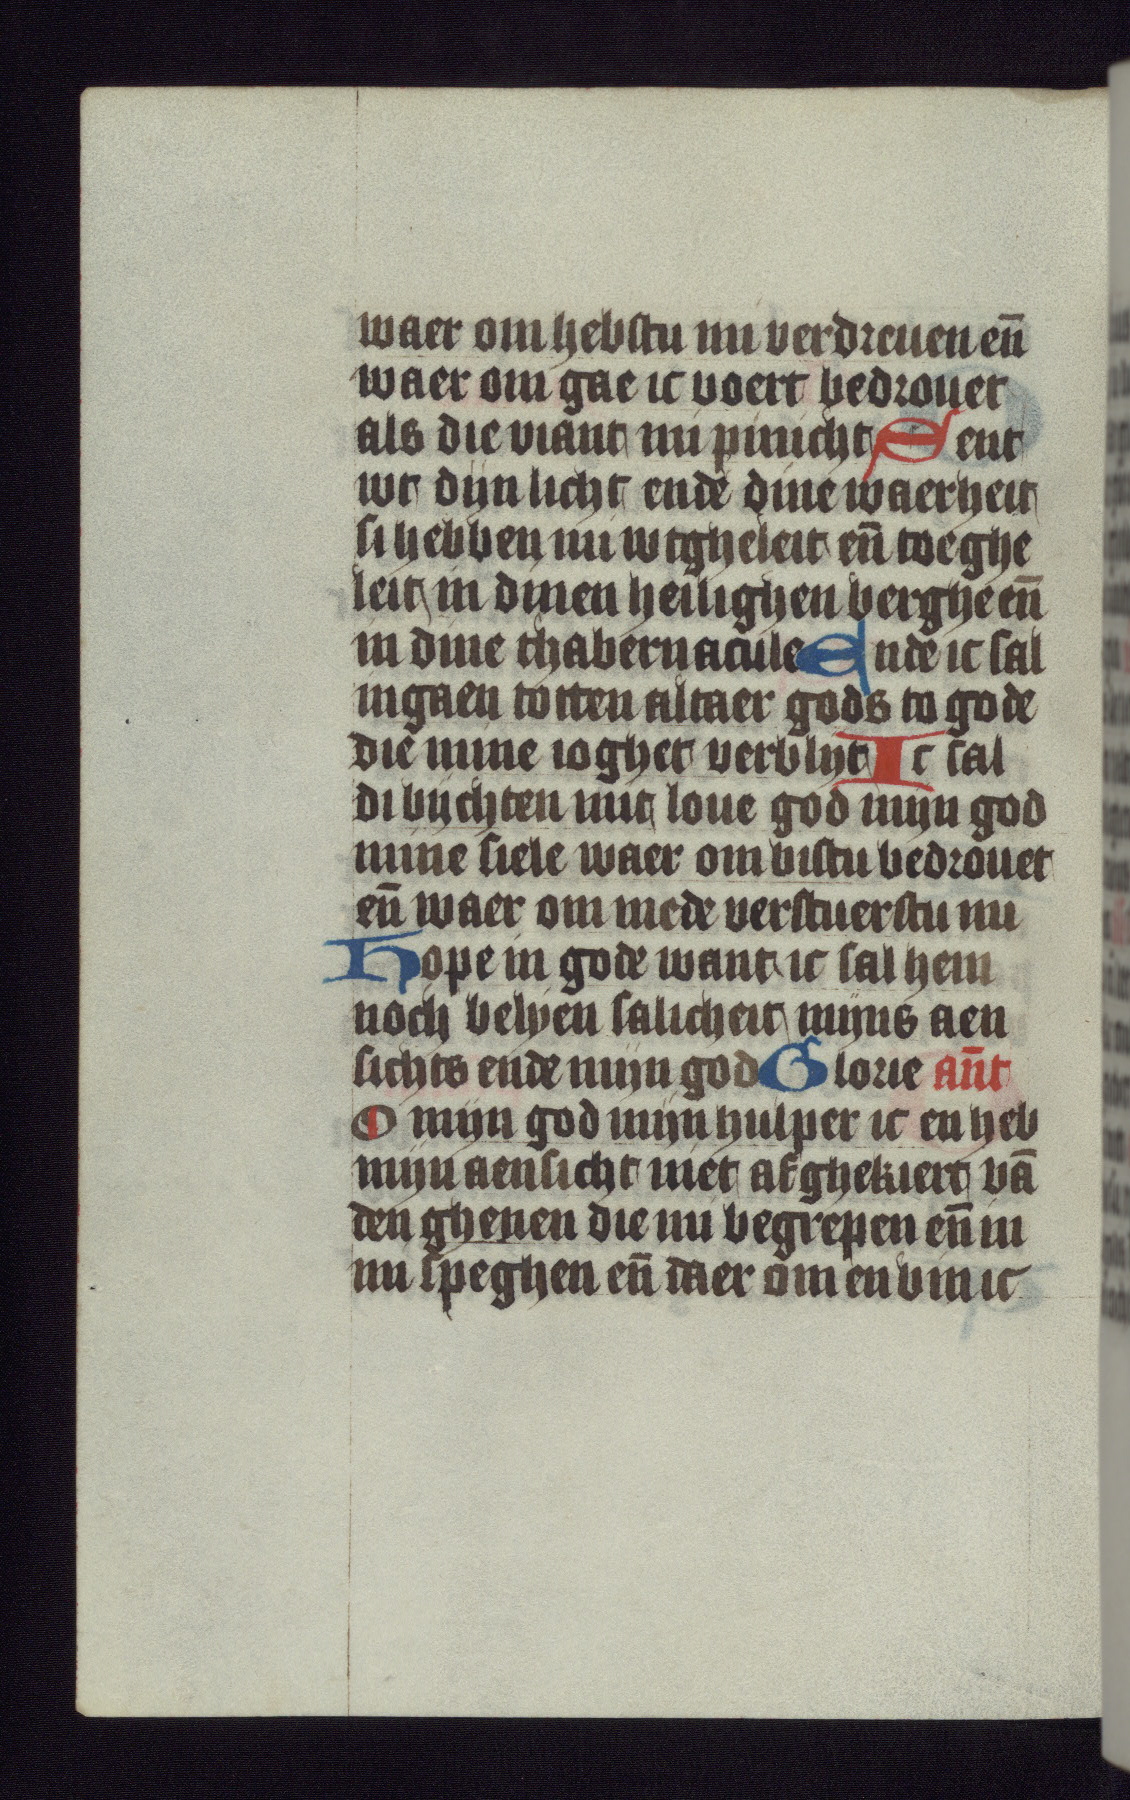 waer om hebstu mi verdreuen en̄
waer om gae ic voert bedrouet
als die viant mi pinicht Sent
wt dijn licht ende dine waerheit
si hebben mi wtgheleit en̄ toeghe
leit in dinen heilighen berghe en̄
in dine thabernacule Ende ic sal
ingaen totten altaer gods to gode
die mine ioghet verblijt Ic sal
di bijchten mit loue god mijn god
mine siele waer om bistu bedrouet
en̄ waer om mede verstuerstu mi
Hope in gode want ic sal hem
noch belyen salicheit mijns aen
sichts ende mijn god Glorie an̄t
O mijn god mijn hulper ic en heb
mijn aensicht niet afghekiert vā
den ghenen die mi begrepen en̄ in
mi speghen en̄ daer om en bin ic